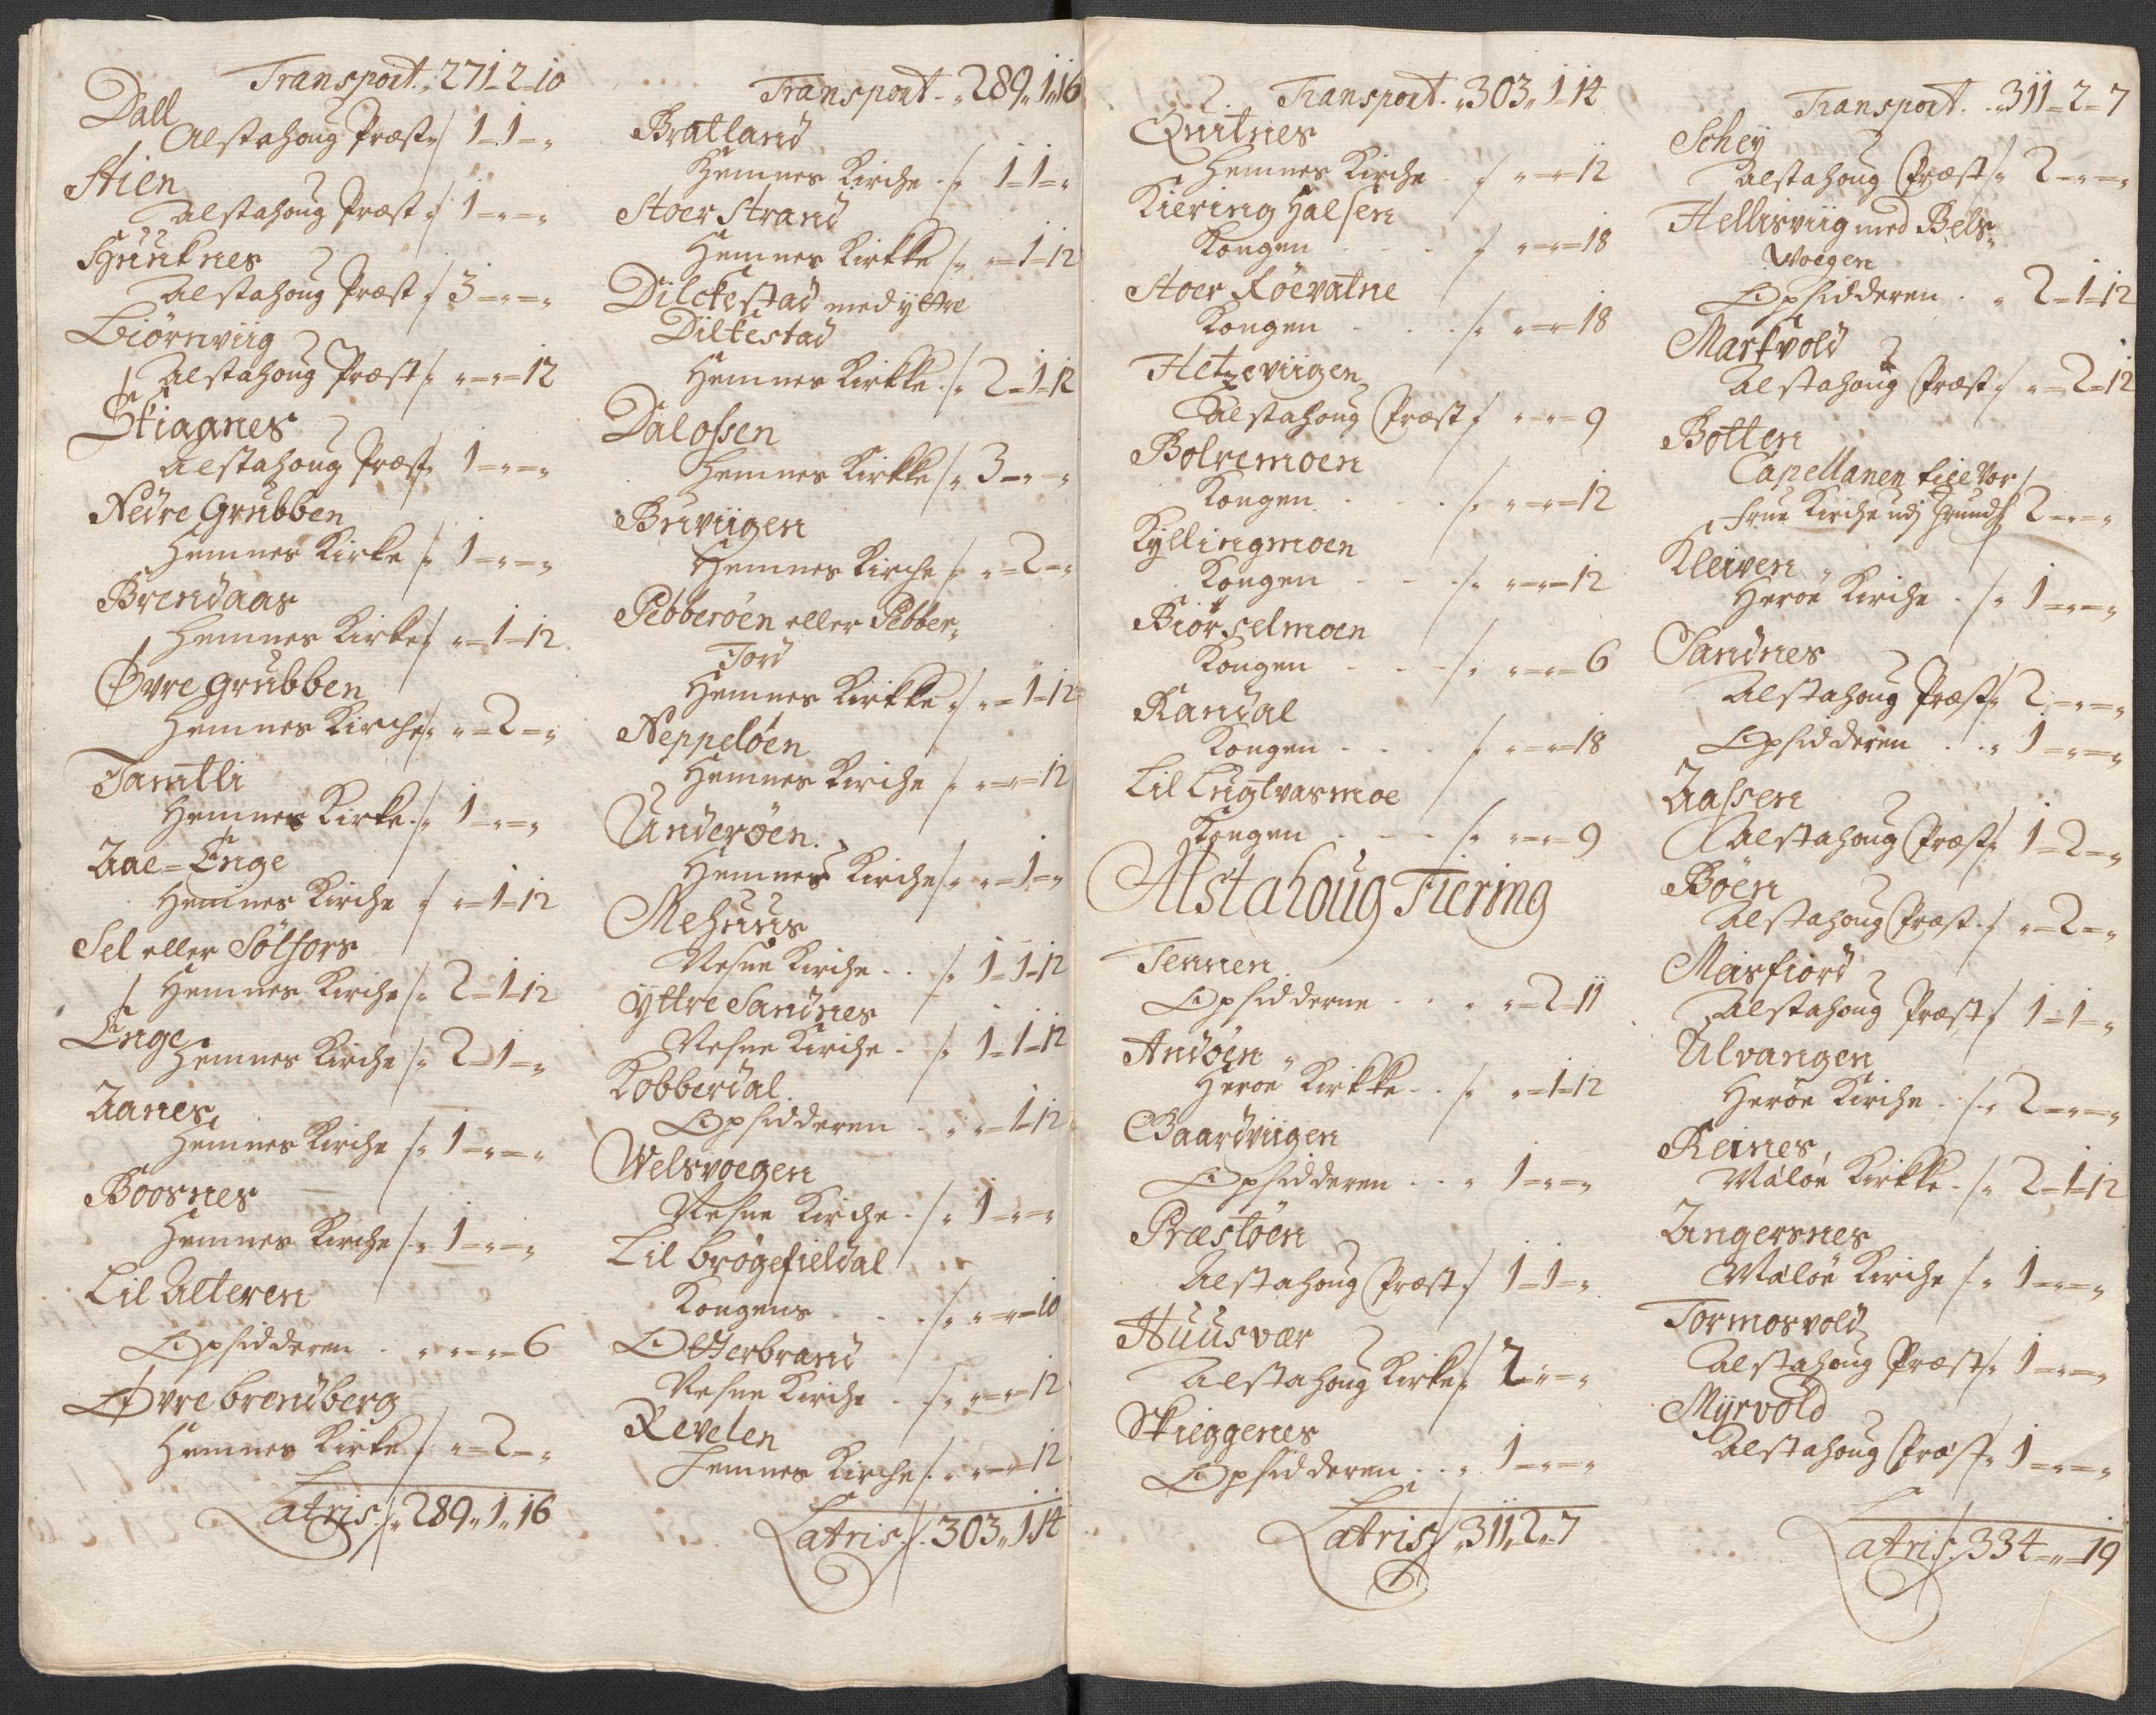 Transport. „ 271-2-10
Dall
Alstahoug Præst „ 1-1-„
Stien
Alstahoug Præst „ 1-„-„
Hunknes
Alstahoug Præst „ 3-„-„
Biörnviig
Alstahoug Præst „ „-„-12
Stiagnes
Alstahoug Præst „ 1-„-„
Nedre Grubben
Hemnes Kirke „ 1-„-„
Brendaas
Hemnes Kirke „ „-1-12
Øvre grubben
Hemnes Kirche „ „-2-„
Tamtli
Hemnes Kirke „ 1-„-„
Aae-Enge
Hemnes Kirche „ „-1-12
Sel eller Sölfors
Hemnes Kirche „ 2-1-12
Enge
Hemnes Kirche „ 2-1-„
Aanes
Hemnes Kirche „ 1-„-„
Boosnes
Hemnes Kirche „ 1-„-„
Lil Alteren
Opsidderen . „ „-„-6
Øvre brendberg
Hemnes Kirke „ „-2-„
Latris „ 289„1„16
Transport - „ 289„1„16
Bratland
Hemnes Kirche - „ 1-1-„
Stoer Strand
Hemnes Kirkke „ „-1-12
Dilckestad med yttre
Dilkestad
Hemnes Kirkke „ 2-1-12
Dalossen
Hemnes Kirkke „ 3-„-„
Bruviigen
Hemnes Kirche „ „-2-„
Pebberöen eller Pebber-
Jord
Hemnes Kirkke „ „-1-12
Neppelöen
Hemnes Kirche „ „-„-12
Underöen
Hemnes Kirche „ „-1-„
Mehuus
Nesne Kirche . . „ 1-1-12
yttre Sandnes
Nesne Kirche - „ 1-1-12
Kobberdal
Opsidderen . „ „-1-12
Welsvoegen
Nesne Kirche - „ 1-„-„
Lil brögefieldal
Kongens . . „ „-„-10
Otterbrand
Nesne Kirche . „ „-„-12
Revelen
Hemnes Kirche „ „-„-12
Latris „ 303„1„14
Transport. „ 303„1-14
Quitnes
Hemnes Kirche - „ „-„-12
Kiering Halsen
Kongen - - - „ „-„-18
Stoer Röevatne
Kongen - . . „ „-„-18
Hetzeviigen
Alstahoug Præst „ „-„-9
Bolremoen
Kongen . - . „ „-„-12
Kyllingmoen
Kongen - - „ „-„-12
Biörselmoen
Kongen - - - „ „-„-6
Randal
Kongen - . . „ „-„-18
Lil Lugtvasmoe
Kongen - - - „ „-„-9
Alstahoug Fiering
Tennen
Opsidderne . . „ „-2-11
Andöen
Heröe Kirkke - . „ „-1-12
Baardviigen
Opsidderen . . „ 1-„-„
Præstöen
Alstahoug Præst „ 1-1-„
Huusvær
Alstahoug Kirke „ 2-„-„
Skieggenes
Opsidderen . . „ 1-„-„
Latris „ 311„2„7
Transport. . „ 311-2-7
Schey
Alstahoug Præst „ 2-„-„
Hellisviig med Bels-
woegen
Opsidderen . „ 2-1-12
Markvold
Alstahoug Præst „ „-2-12
Botten
Capellanen till Vor
Frue Kirche udj Trundh 2-„-„
Kleiven
Heröe Kirche . „ 1-„-„
Sandnes
Alstahoug Præst „ 2-„-„
Opsidderen . . „ 1-„-„
Aassen
Alstahoug Præst „ 1-2-„
Böen
Alstahoug Præst „ „-2-„
Meisfiord
Alstahoug Præst „ 1-1-„
Ulvangen
Heröe Kirche . „ 2-„-„
Reines
Walöe Kirkke „ 2-1-12
Angersnes
Walöe Kirche „ 1-„-„
Tormosvold
Alstahoug Præst „ 1-„-„
Myrvold
Alstahoug Præst „ 1-„-„
Latris „ 334-„-19